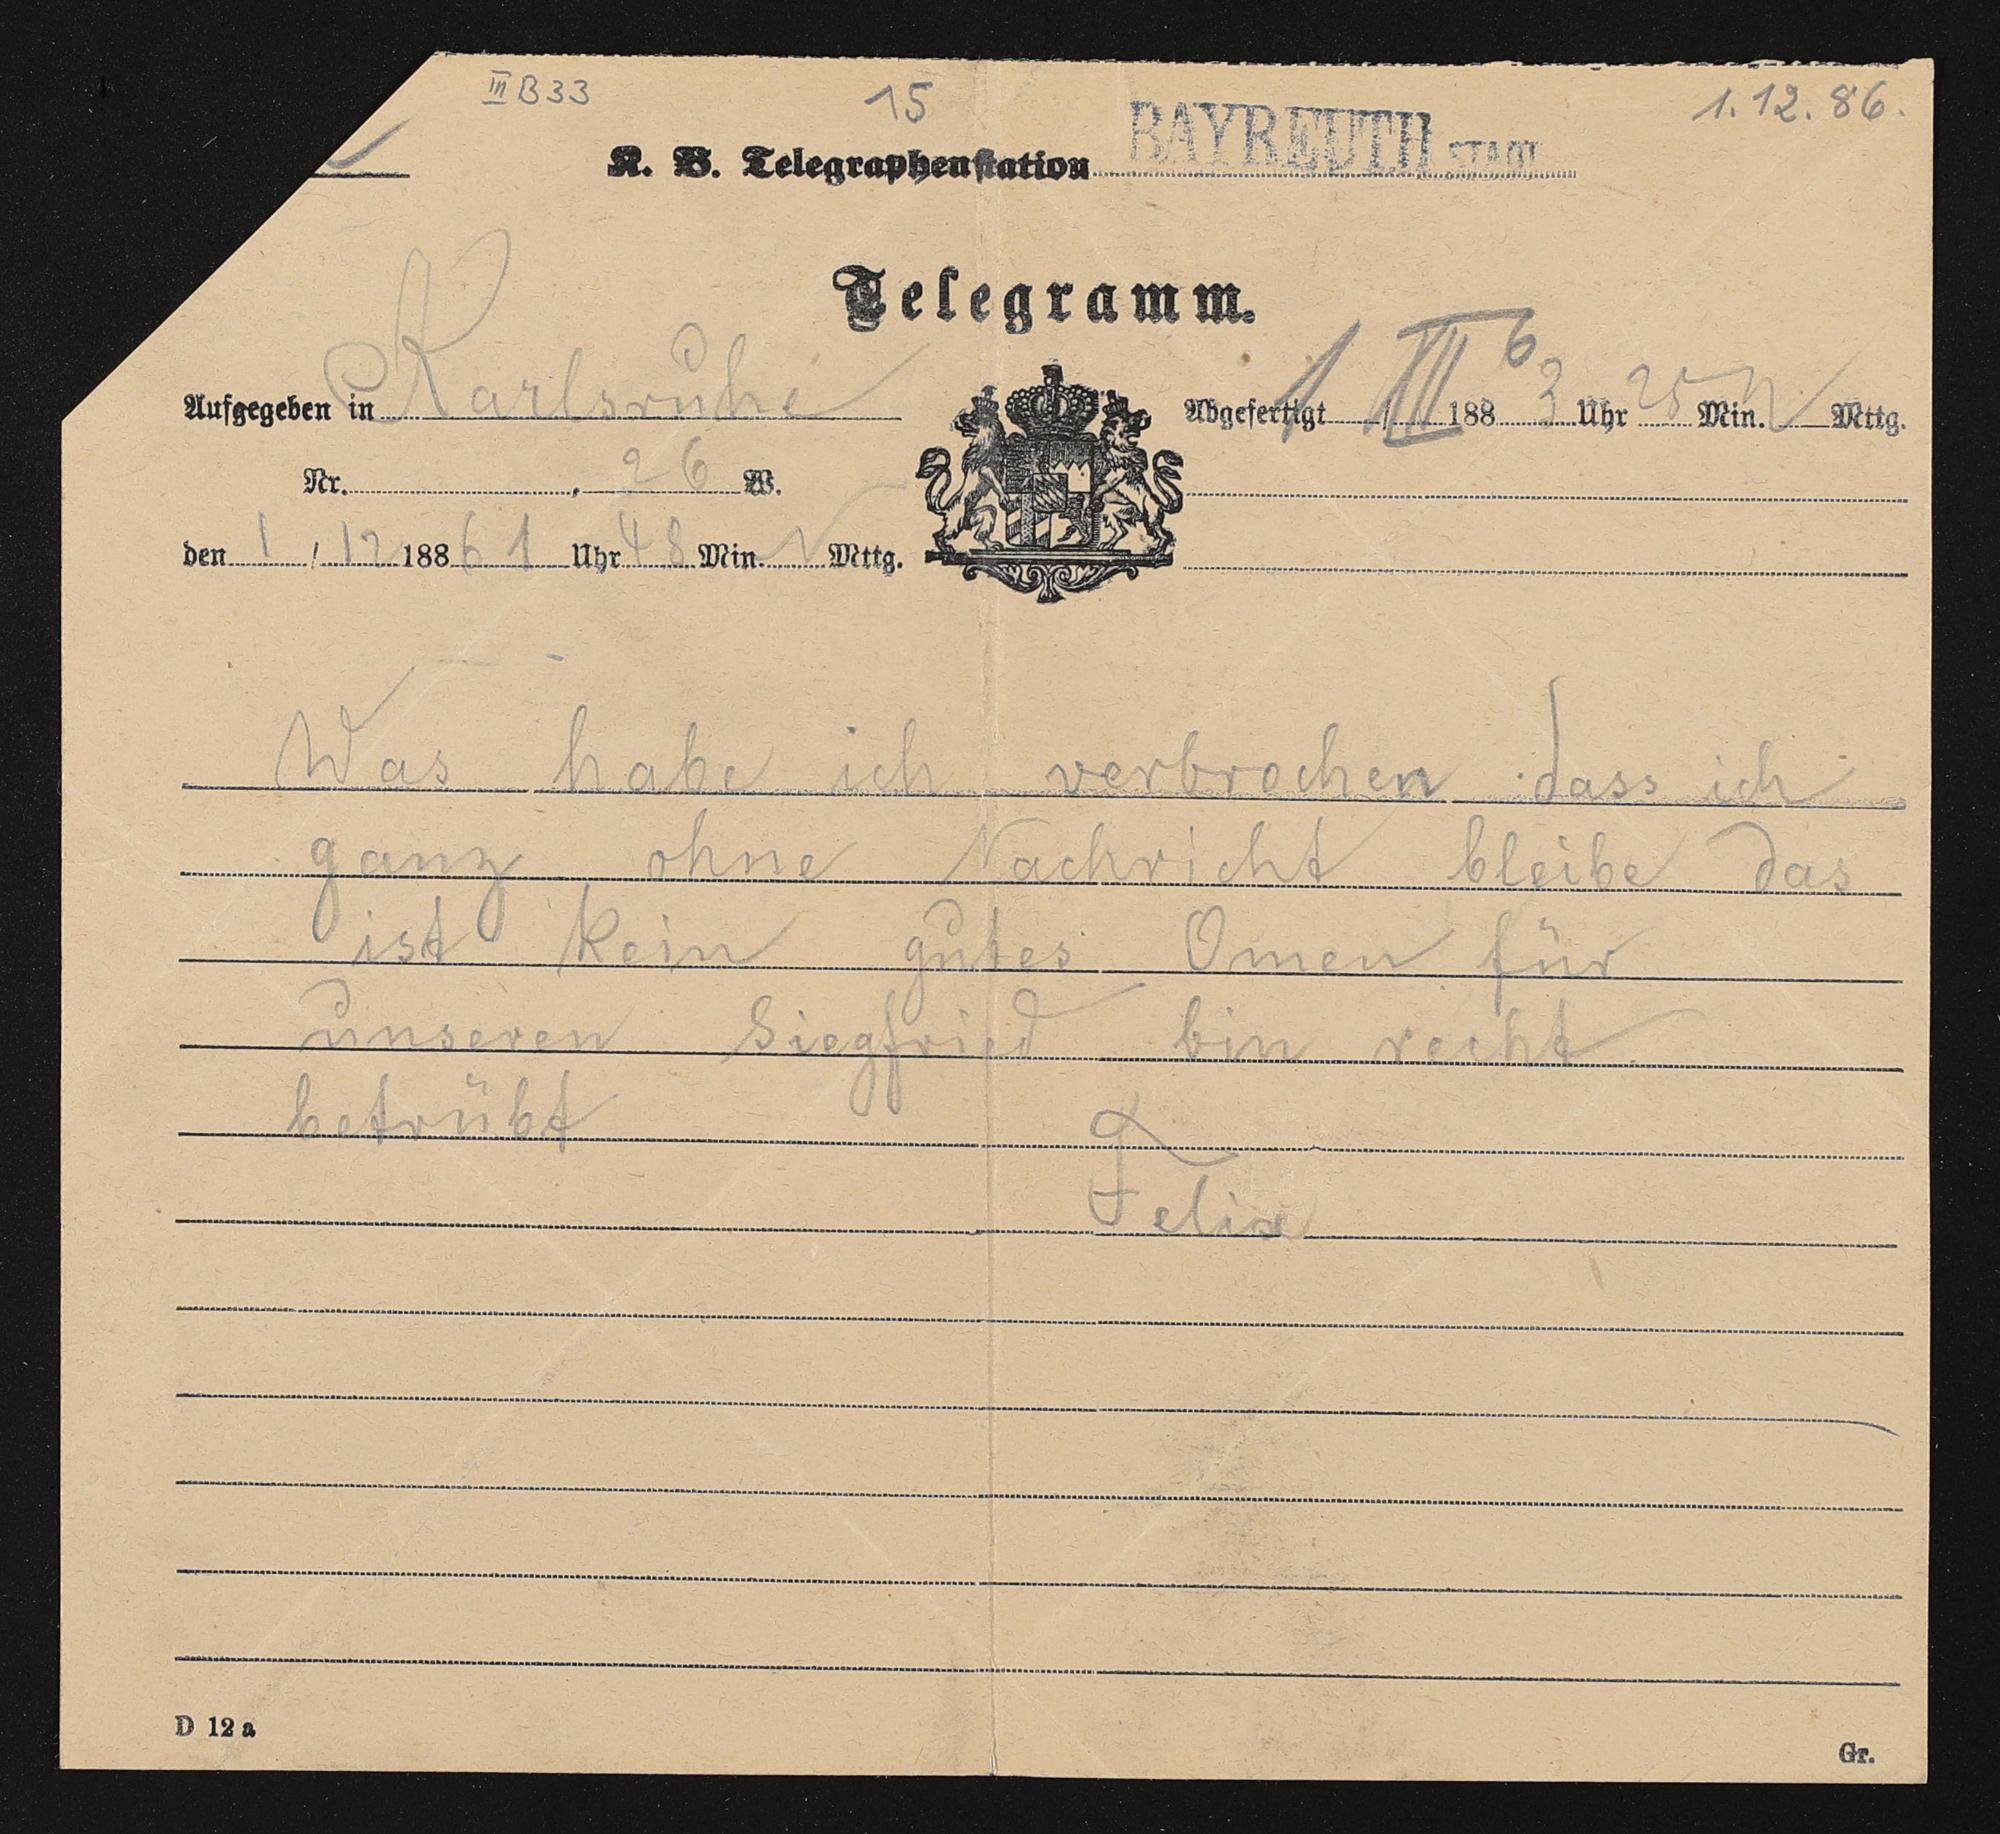 III B 33
15
1. 12. 86.
K. B. Telegraphenstation BAYREUTH STADT
Telegramm.
Aufgegeben in Karlsruhe
Abgefertigt 1 / XII 1886 3 Uhr 25 Min. N Mttg.
Nr. , 26 W.
den 1 / 12 1886 1 Uhr 48 Min. N Mttg.
Was habe ich verbrochen dass ich
ganz ohne Nachricht bleibe das
ist kein gutes Omen für
unseren Siegfried bin recht
betrübt
Felix
D 12 a
Gr.